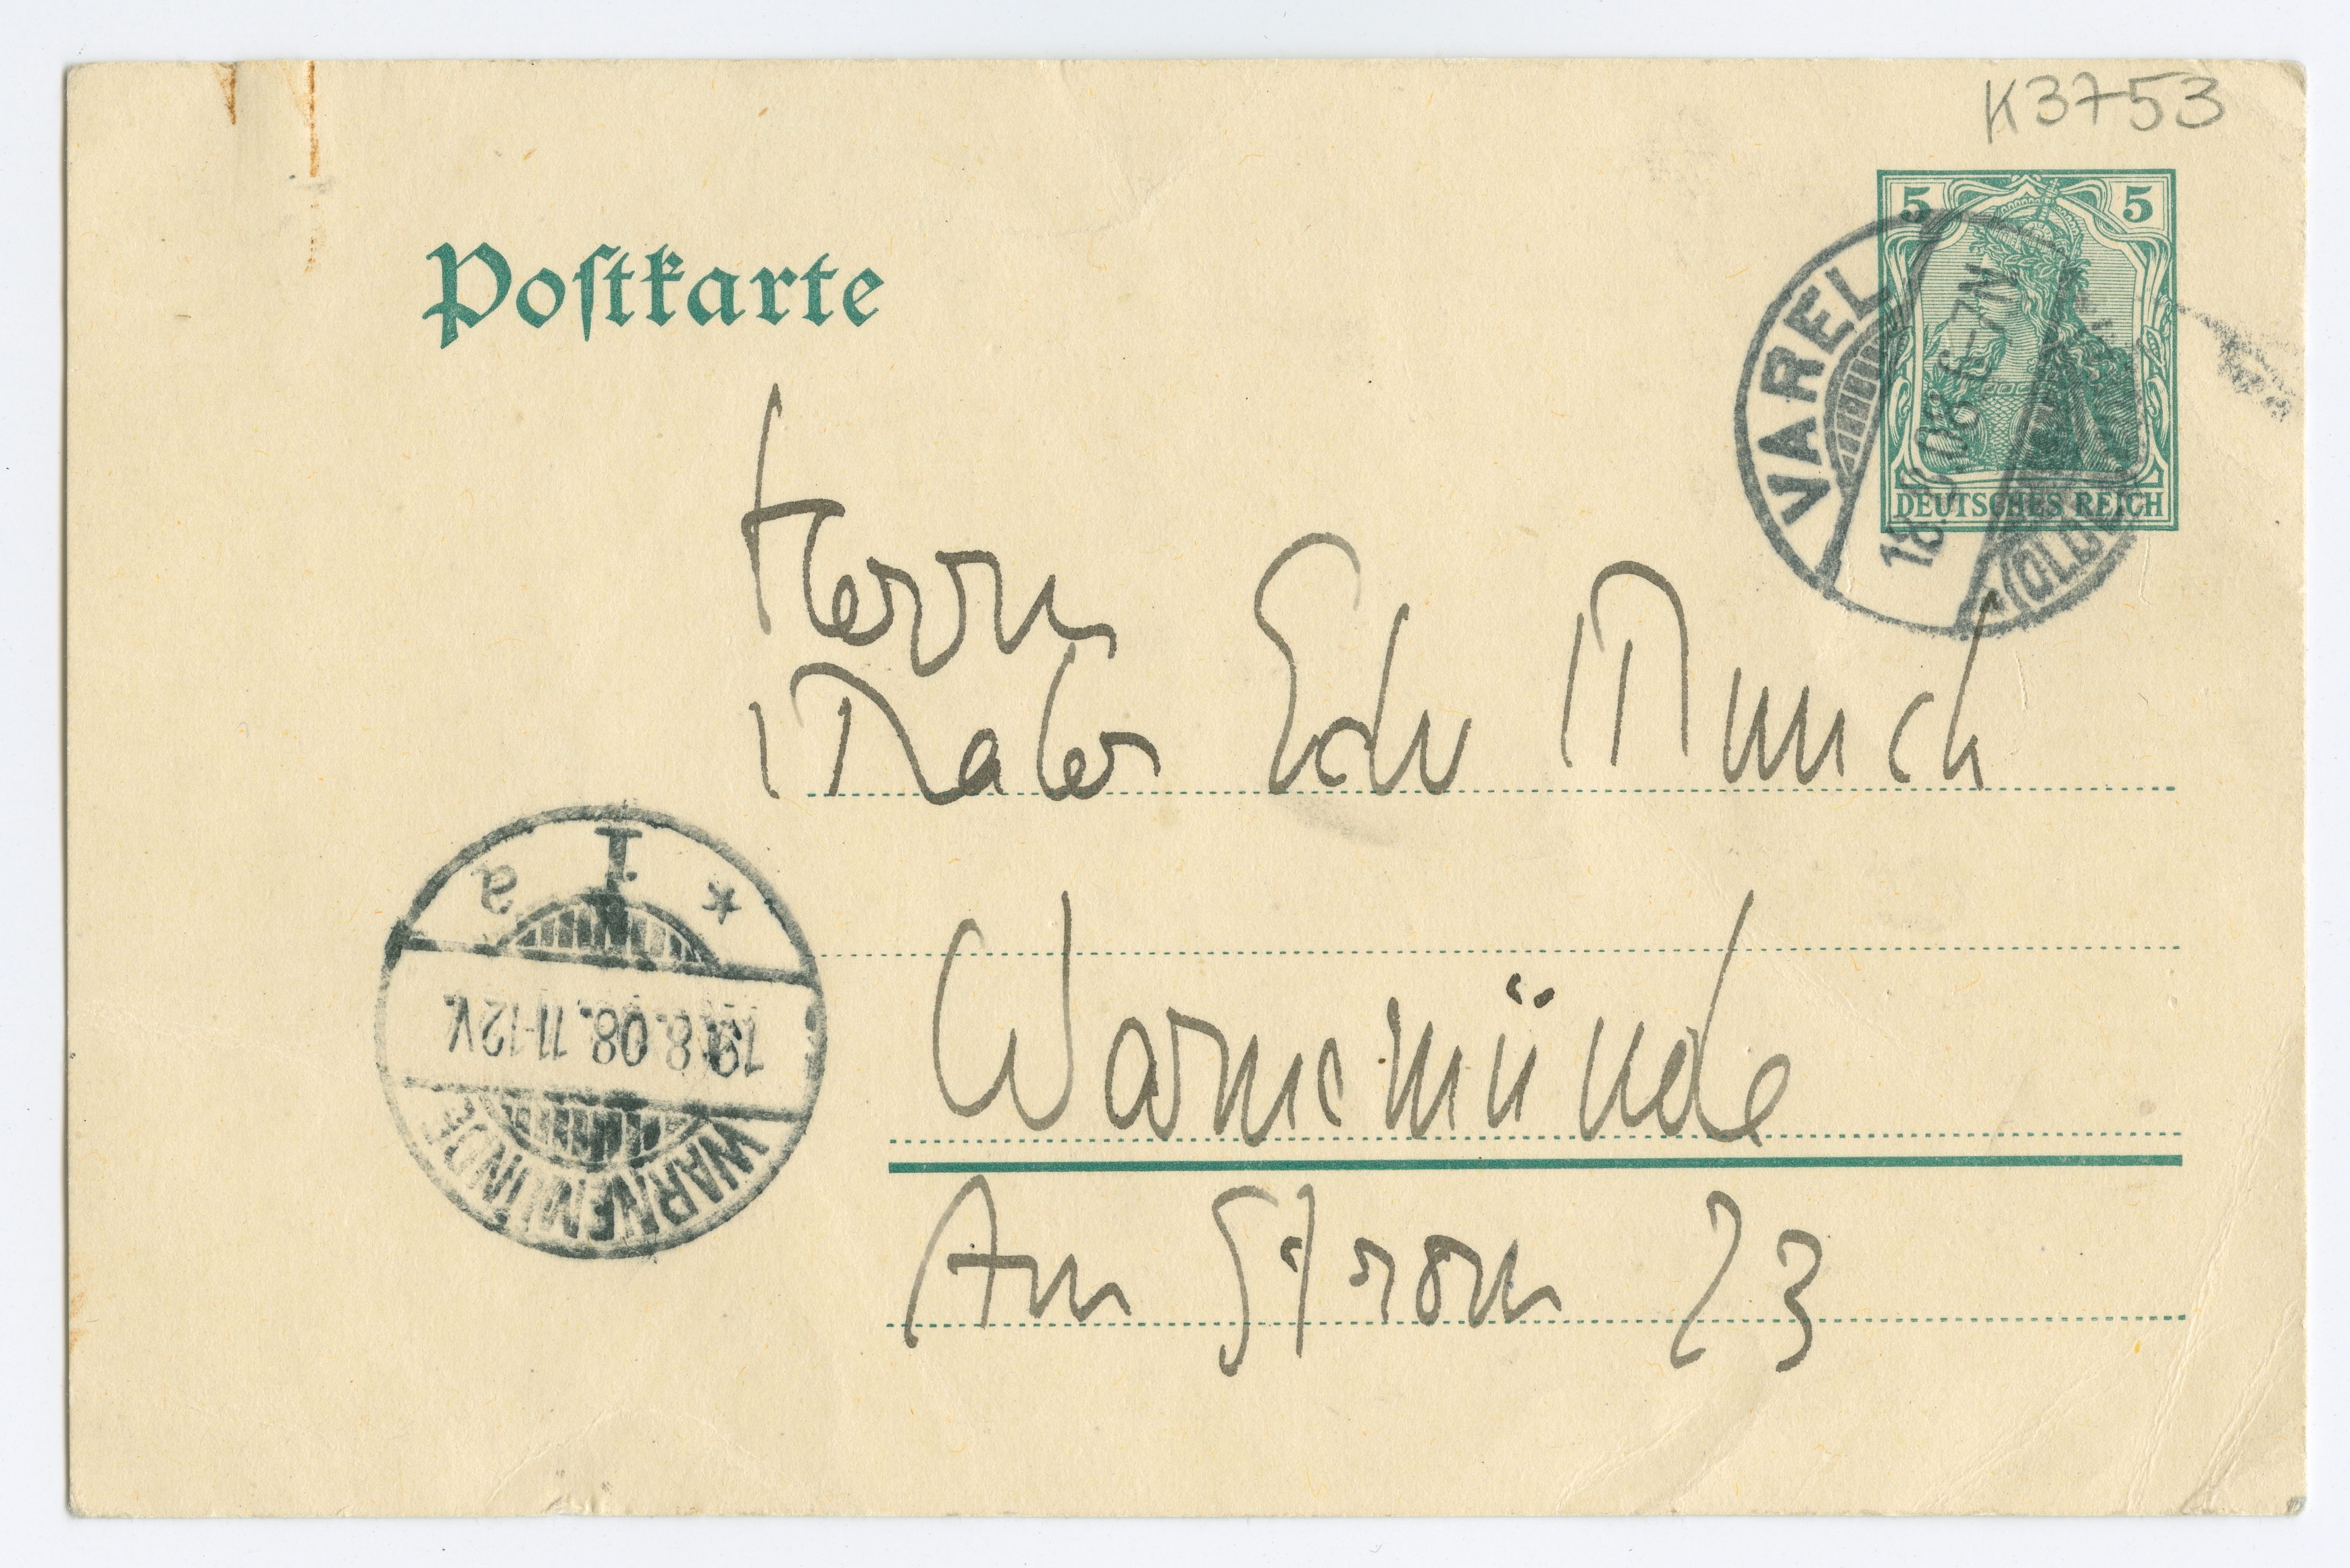 K3753
Postkarte
5 5
DEUTSCHES REICH
VAREL
18.8.08.6-7N
(OLDB)
Herrn
Maler Edv Munch
Warnemünde
Am Strom 23
* 1 a
19.8.08.11-12V.
WARNEMÜNDE